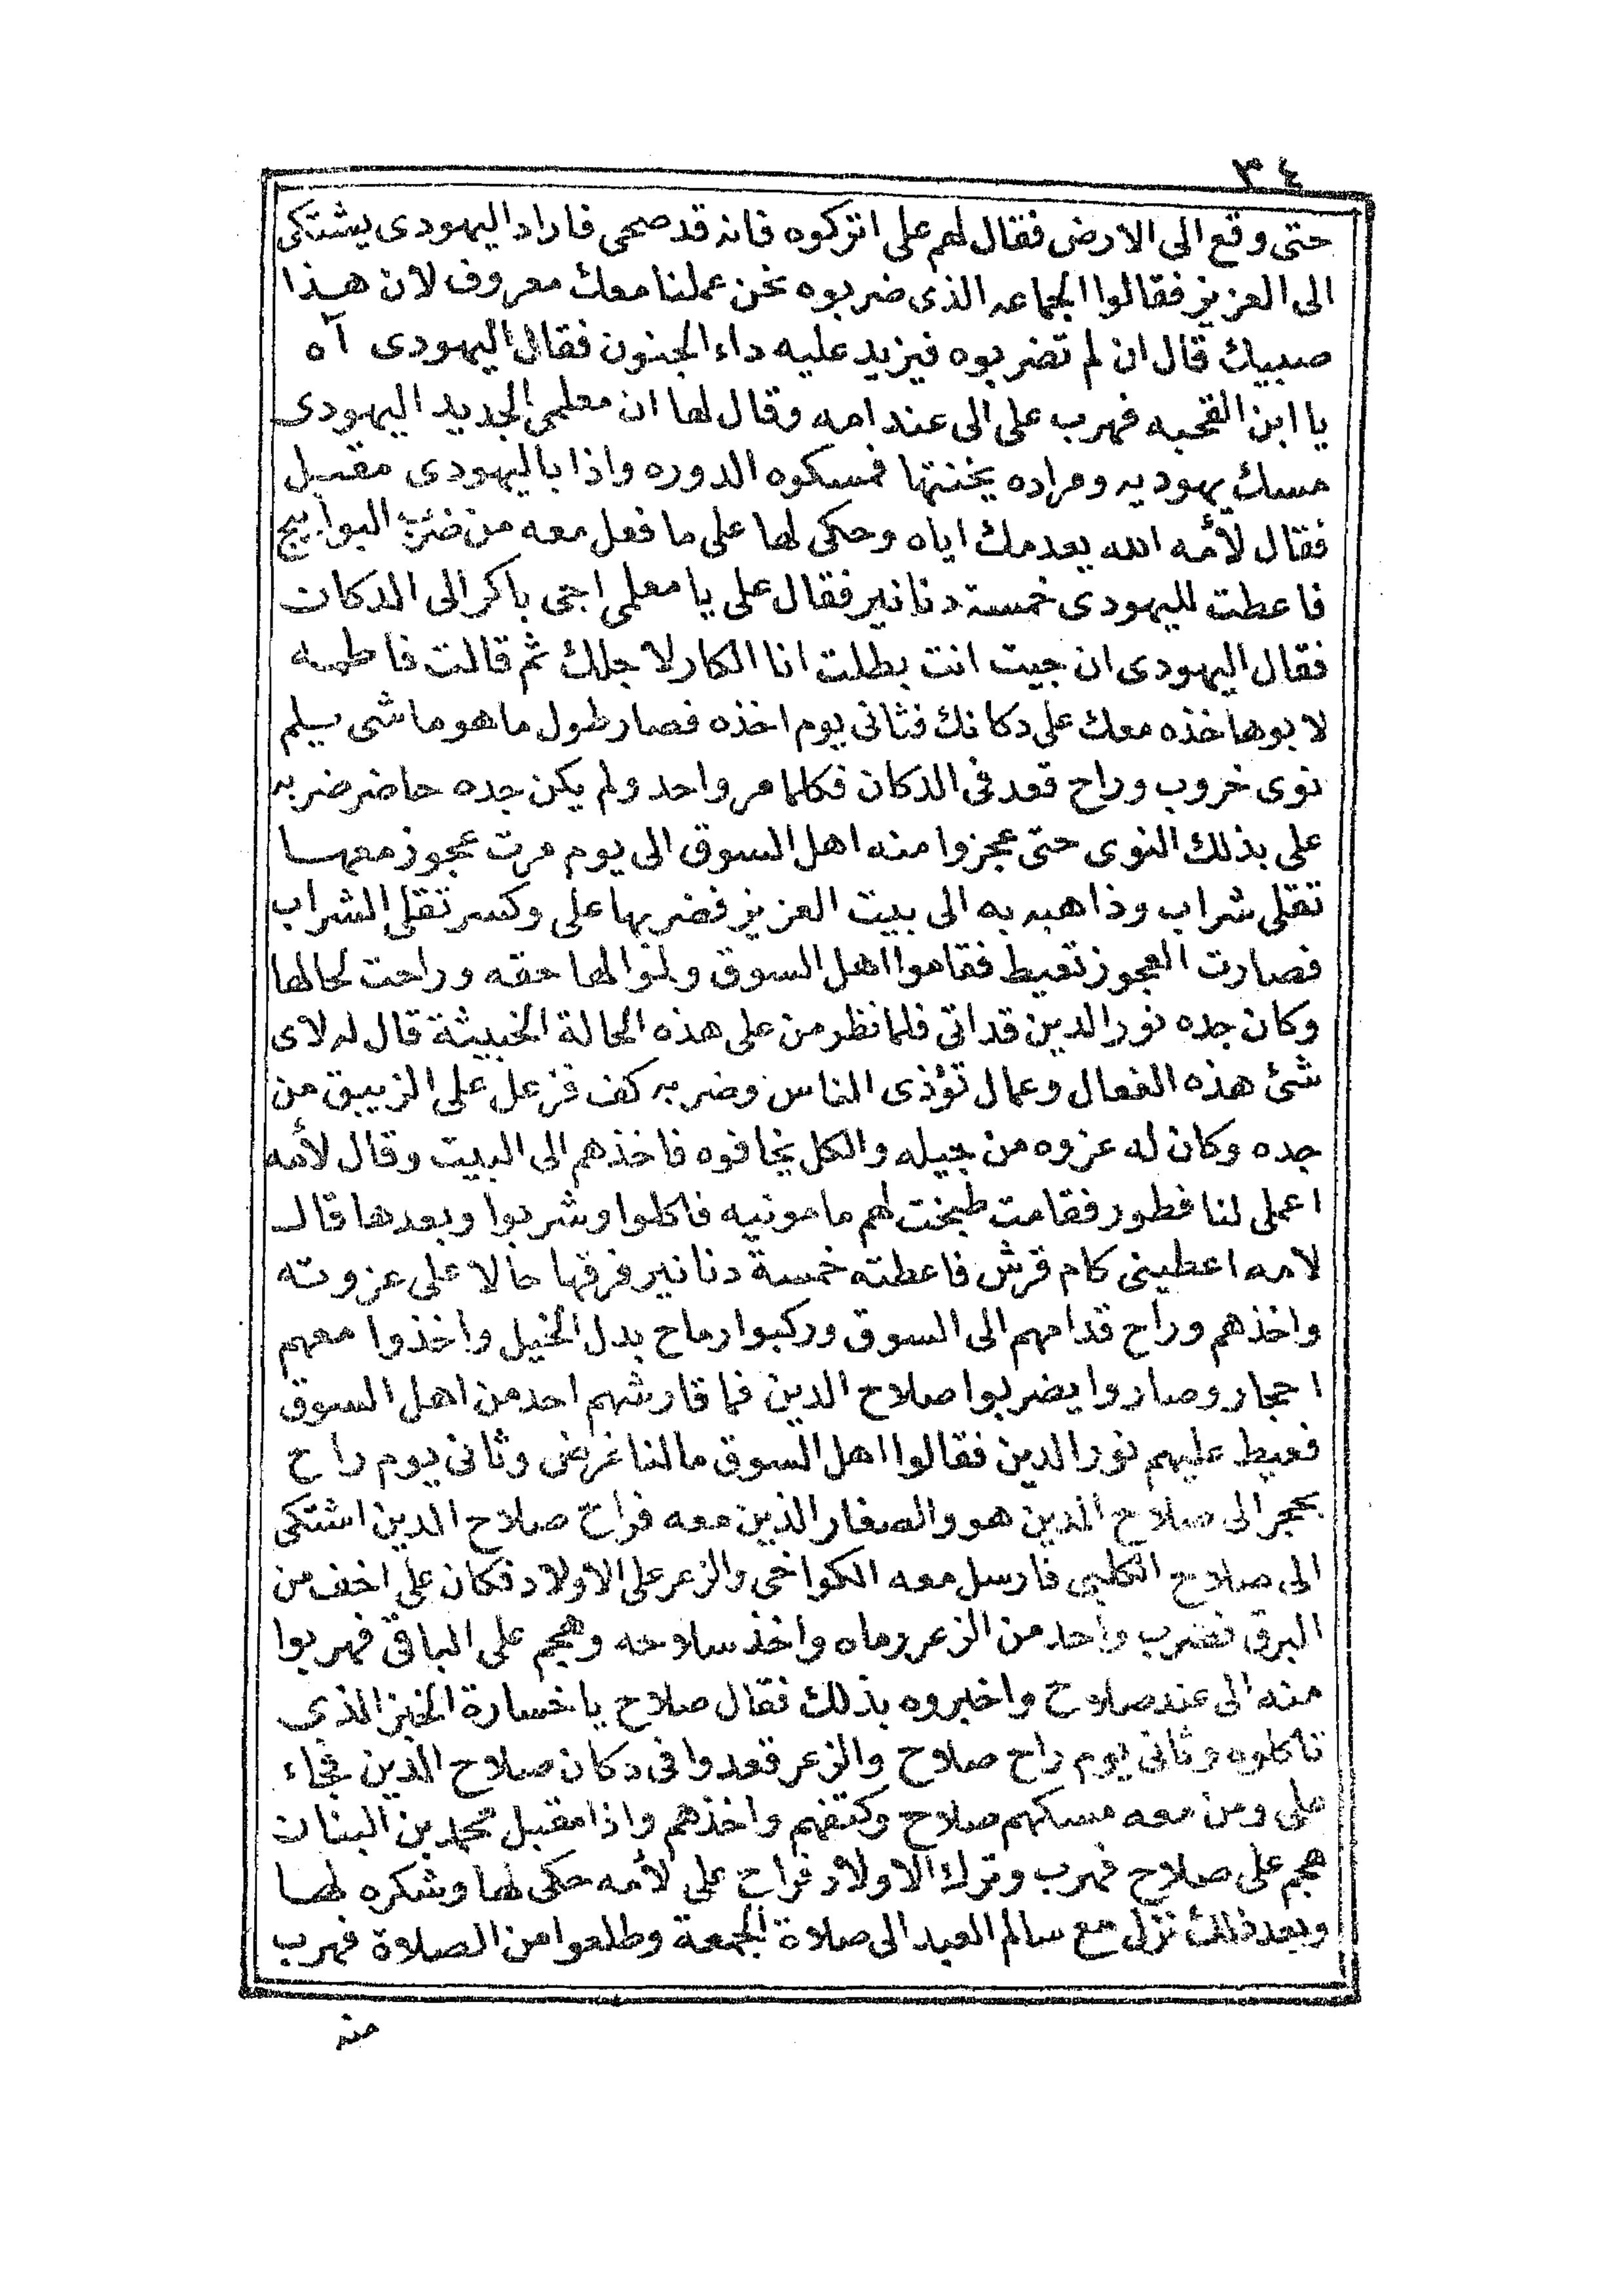 ٣٤
حتى وقع الى الارض فقال لهم على اتركوه فانه قد صحى فاراد اليهودى يشتكى
الى العزيز فقالوا الجماعه الذى ضربوه نحن عملنا معك معروف لان هذا
صبيك قال ان لم تضربوه فيزيد عليه داء الجنون فقال اليهودى آه
يا ابن القحبه فهرب على الى عند امه وقال لها ان معلمى الجديد اليهودى
مسك يهوديه ومراده يخنتها فمسكوه الدوره واذا باليهودى مقبل
فقال لأمه الله يعدمك اياه وحكى لها على ما فعل معه من ضرب البوابيج
فاعطت لليهودى خمسة دنانير فقال على يا معلمى اجى باكر الى الدكان
فقال اليهودى ان جيت انت بطلت انا الكار لاجلك ثم قالت فاطمه
لابوها خذه معك على دكانك فثانى يوم اخذه فصار طول ما هو ماشى يبلم
نوى خروب وراح قعد فى الدكان فكلما مر واحد ولم يكن جده حاضر ضربه
على بذلك النوى حتى عجزوا منه اهل السوق الى يوم مرت عجوز معها
تقلى شراب وذاهبه به الى بيت العزيز فضربها على وكسر تقلى الشراب
فصارت العجوز تعيط فقاموا اهل السوق ولموا لها حقه وراحت لحالها
وكان جده نور الدين قد اتى فلما نظر من على هذه الحالة الخبيثة قال له لاى
شئ هذه الفعال وعمال تؤذى الناس وضربه كف فزعل على الزيبق من
جده وكان له عزوه من جيله والكل يخافوه فاخذهم الى البيت وقال لأمه
اعملى لنا فطور فقامت طبخت لهم مامونيه فاكلوا وشربوا وبعدها قال
لامه اعطينى كام قرش فاعطته خمسة دنانير فرقها حالا على عزوته
واخذهم وراح قدامهم الى السوق وركبوا رماح بدل الخيل واخذوا معهم
احجار وصاروا يضربوا صلاح الدين فما قارشهم احد من اهل السوق
فعيط عليهم نور الدين فقالوا اهل السوق مالنا غرض وثانى يوم راح
بحجر الى صلاح الدين هو والصغار الذين معه فراح صلاح الدين اشتكى
الى صلاح الكلبى فارسل معه الكواخى والزعر على الاولاد فكان على اخف من
البرق فضرب واحد من الزعر رماه واخذ سلاحه وهجم على الباقى فهربوا
منه الى عند صلاح واخبروه بذلك فقال صلاح يا خسارة الخبز الذى
تاكلوه وثانى يوم راح صلاح والزعر قعدوا فى دكان صلاح الدين فجاء
على ومن معه مسكهم صلاح وكتفهم واخذهم واذا مقبل محمد بن البنات
هجم على صلاح فهرب وترك الاولاد فراح على لأمه حكى لها وشكره لها
وبعد ذلك نزل مع سالم العبد الى صلاة الجمعة وطلعوا من الصلاة فهرب
منه